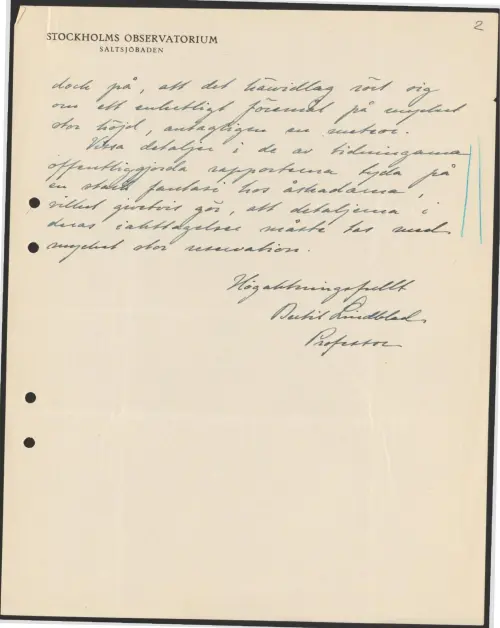 2
STOCKHOLMS OBSERVATORIUM
SALTSJÖBADEN
dock på, att det härvidlag rört sig
om ett enhetligt föremål på mycket
stor höjd, antagligen en meteor.
Vissa detaljer i de av tidningarna
offentliggjorda rapporterna tyda på
en stark fantasi hos åskådarna,
vilket givetvis gör, att detaljerna i
deras iakttagelser måste tas med
mycket stor reservation.
Högaktningsfullt
Bertil Lindblad
Professor